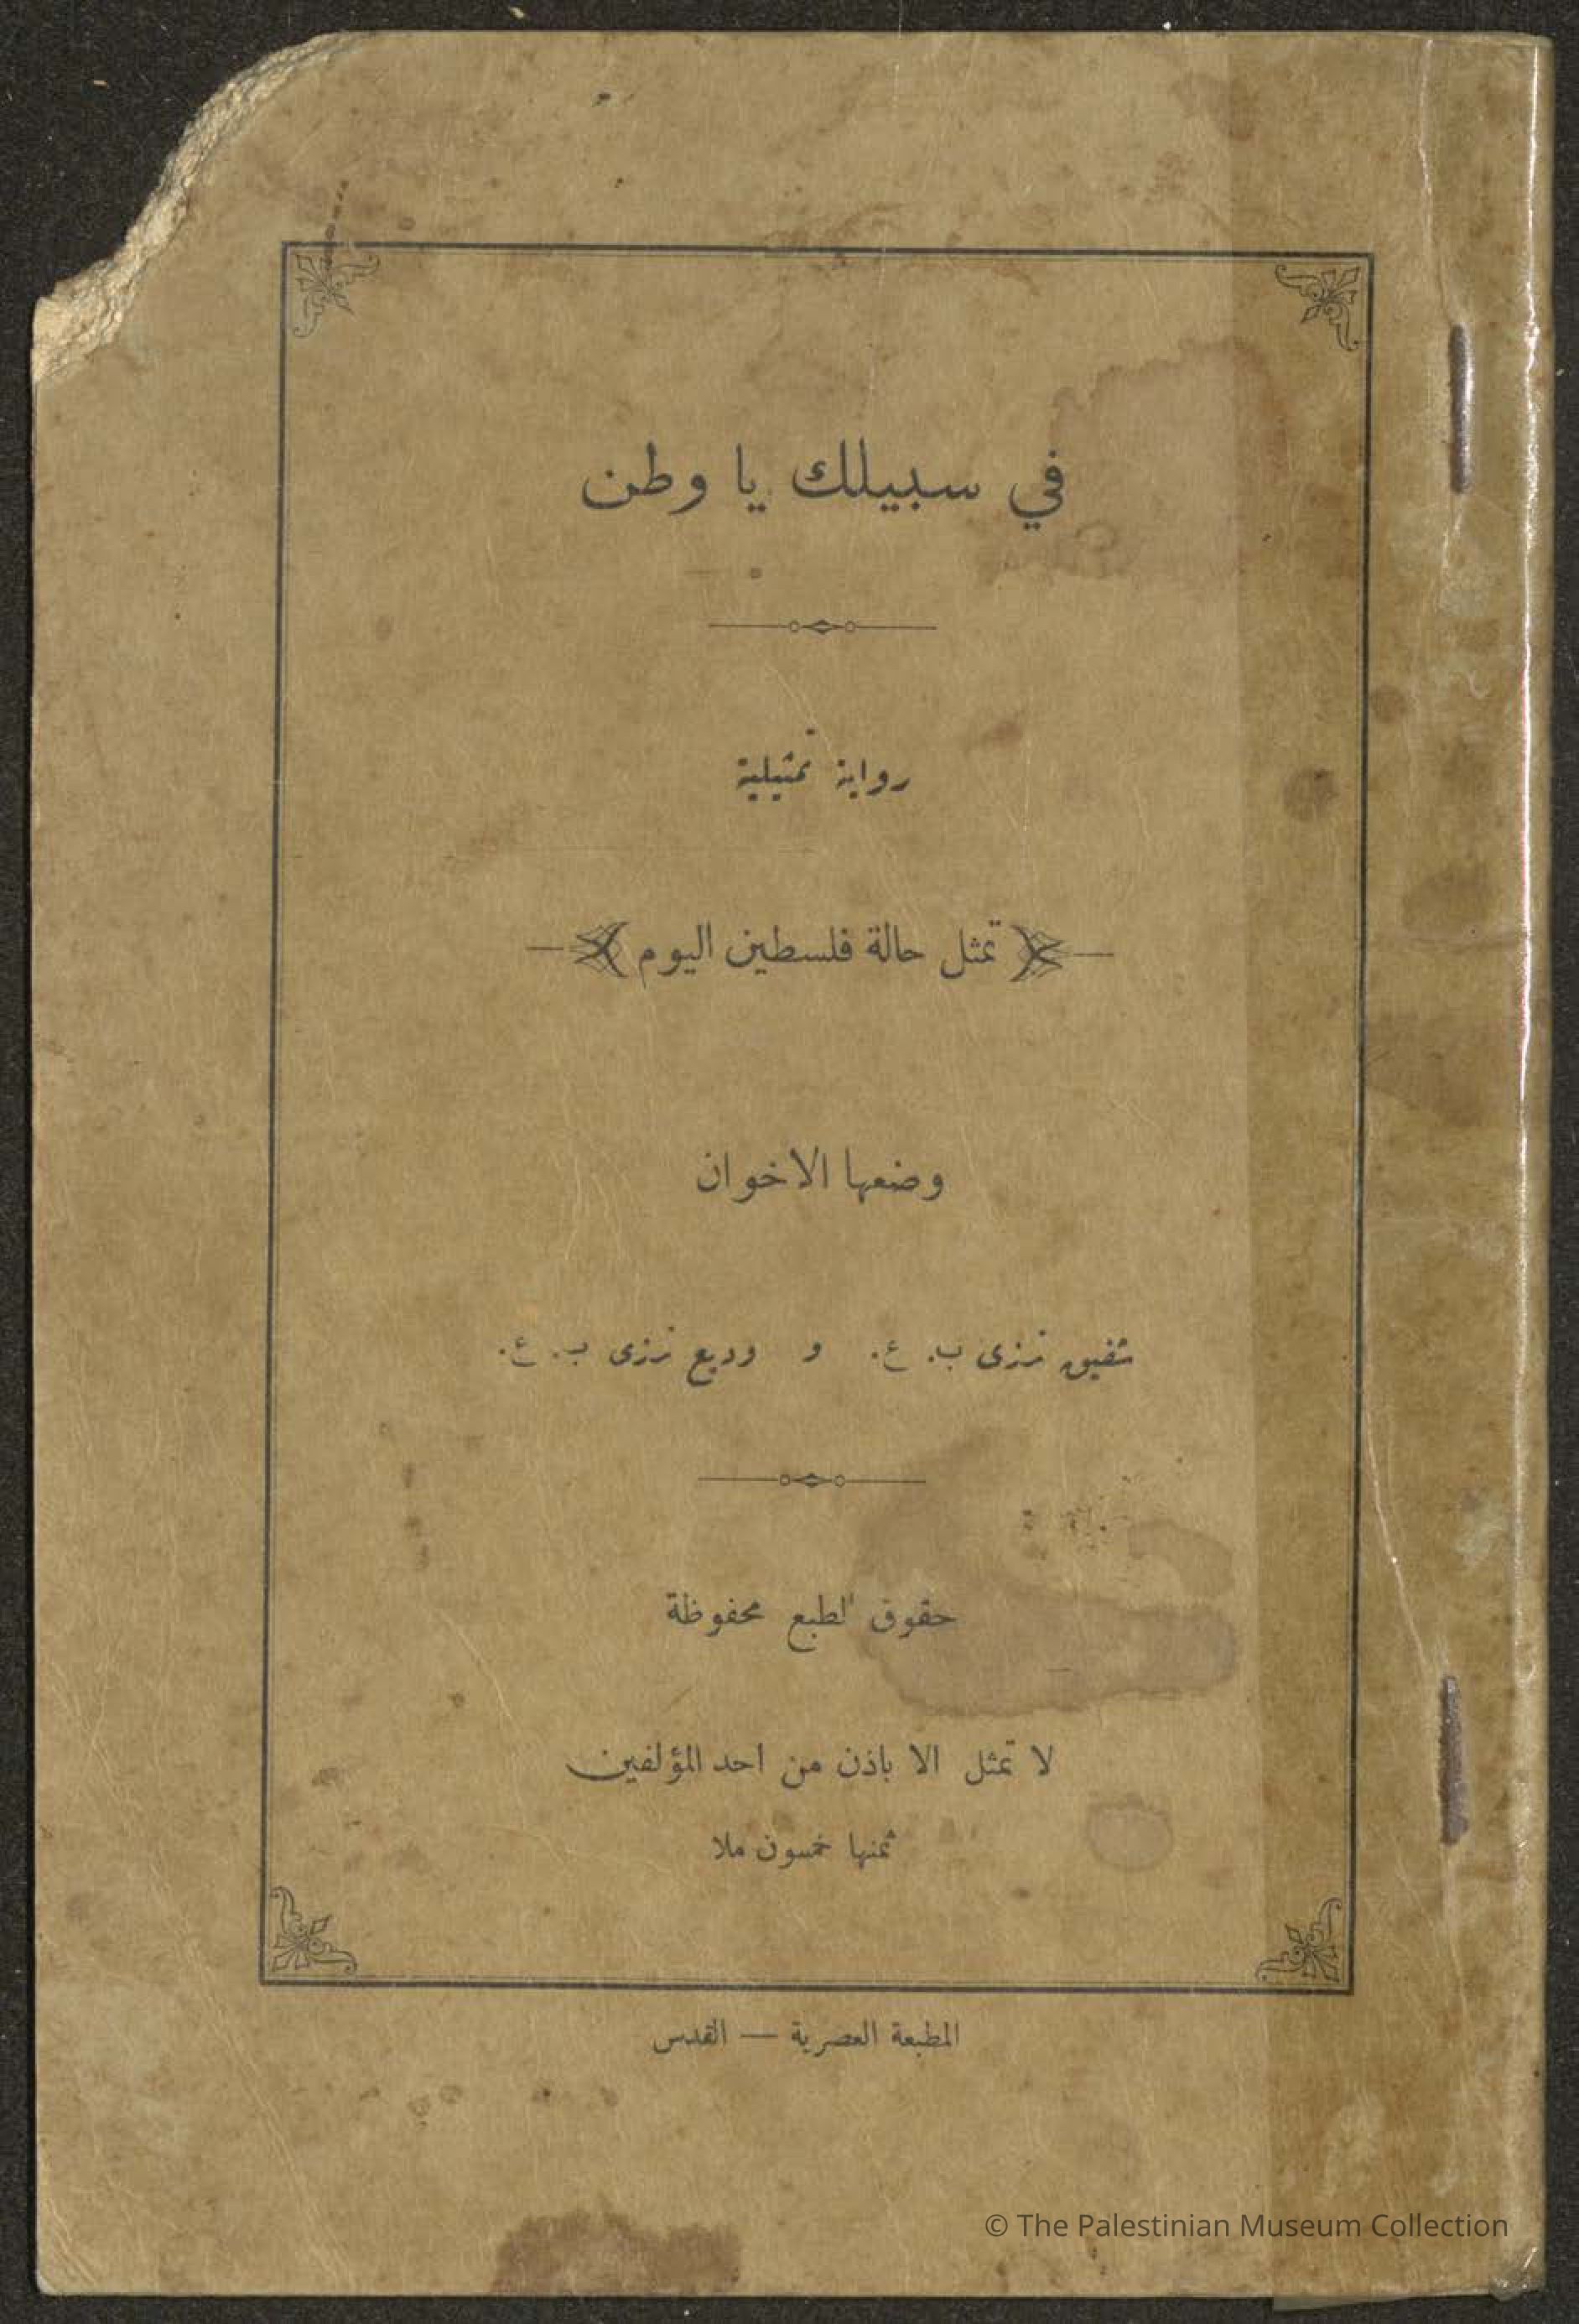 في سبيلك يا وطن
رواية تمثيلية
تمثل حالة فلسطين اليوم
وضعها الاخوان
شفيق ترزى ب. ع. و وديع ترزى ب. ع.
حقوق الطبع محفوظة
لا تمثل الا باذن من احد المؤلفين
ثمنها خمسون ملا
المطبعة العصرية — القدس
© The Palestinian Museum Collection